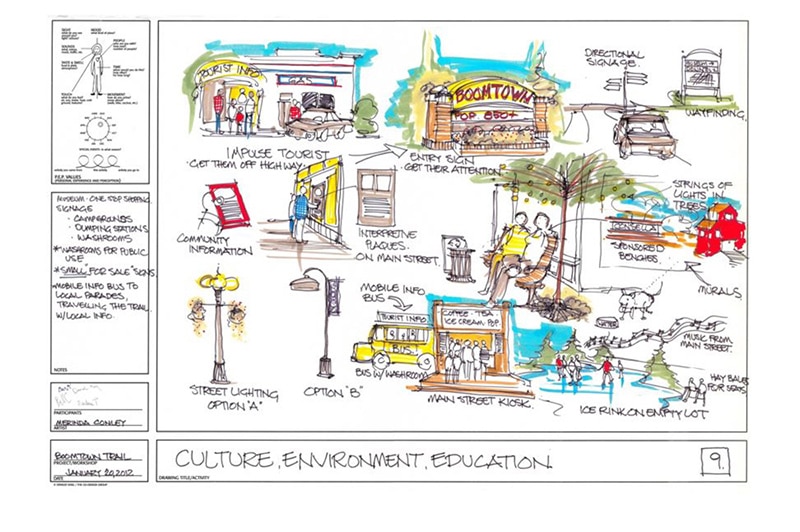 SIGHT
MOOD
PEOPLE
SOUNDS
TASTE & SMELL
TIME
TOUCH
MOVEMENT
P.E.P. VALUES
(PERSONAL EXPERIENCE AND PERCEPTION)
MUSEUM - ONE STOP SHOPPING
SIGNAGE
· CAMPGROUNDS
· DUMPING STATIONS
· WASHROOMS
* WASHROOMS FOR PUBLIC
USE
* SMALL "FOR SALE" SIGNS
~MOBILE INFO BUS TO
LOCAL PARADES,
TRAVELLING THE TRAIL
W/LOCAL INFO.
NOTES
PARTICIPANTS
MERINDA CONLEY
ARTIST
BOOMTOWN TRAIL
PROJECT/WORKSHOP
JANUARY 20, 2012
DATE
TOURIST INFO
GAS
IMPULSE TOURIST
· GET THEM OFF HIGHWAY ·
BOOMTOWN
POP 850+
ENTRY SIGN
· GET THEIR ATTENTION
DIRECTIONAL
SIGNAGE
WAYFINDING.
COMMUNITY
INFORMATION
INTERPRETIVE
PLAQUES ·
ON MAIN STREET.
STRINGS OF
LIGHTS IN
TREES
SPONSORED
BENCHES.
MURALS
STREET LIGHTING
OPTION "A"
OPTION "B"
MOBILE INFO
BUS
TOURIST INFO
BUS
BUS W/ WASHROOM
COFFEE · TEA
ICE CREAM · POP
MAIN STREET KIOSK.
MUSIC FROM
MAIN STREET.
HAY BALES
FOR SEATS
ICE RINK ON EMPTY LOT
CULTURE, ENVIRONMENT, EDUCATION
DRAWING TITLE/ACTIVITY
9.